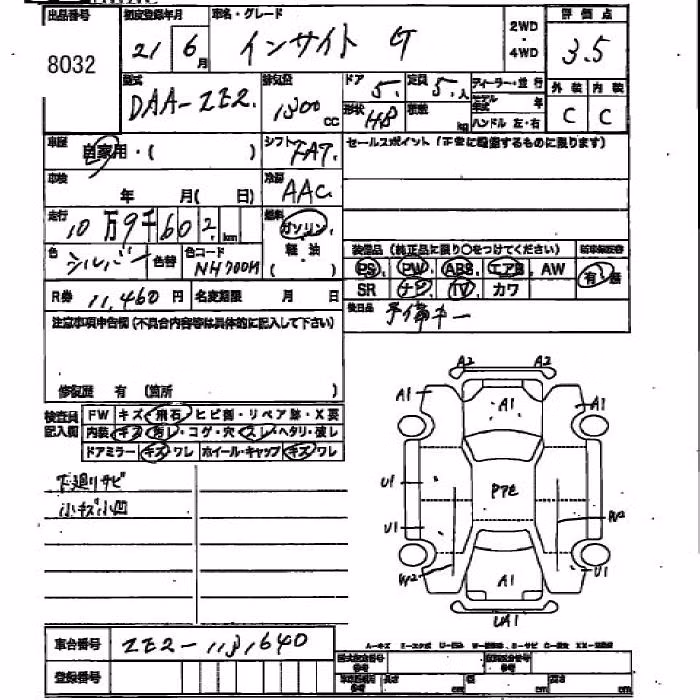 出品番号 初度登録年月 車名・グレード 2WD・4WD 評価点
8032 21 6月 インサイト G 3.5
型式 排気量 ドア 定員 ディーラー・並行 外装 内装
DAA-ZE2. 1300cc 5. 5.人 モデル年式 年 C C
形状 HB 積載 kg ハンドル 左・右
車歴 自家用・( ) シフト FAT. セールスポイント(正常に機能するものに限ります)
車検 年 月( 日) 冷房 AAC
走行 10万9千602km 燃料 ガソリン 軽油 ( )
装備品(純正品に限り○をつけてください)
色 シルバー 色替 色コード NH700M
PS PW ABS エアB AW 有・無
SR ナビ TV カワ
R券 11,460円 名変期限 月 日 後日品 予備キー
注意事項申告欄(不具合内容等は具体的に記入して下さい)
修復歴 有 (箇所 )
検査員記入欄 FW キズ・飛石・ヒビ割・リペア跡・X要
内装 キズ・汚レ・コゲ・穴・スレ・ヘタリ・破レ
ドアミラー キズ・ワレ ホイール・キャップ キズ・ワレ
下廻りサビ
小キズ小凹
A2 A2
A1 A1 A1
U1 P7E
U1
W2 A1 U1
UA1
車台番号 ZE2-1131640
登録番号
長さ cm 幅 cm 高さ cm